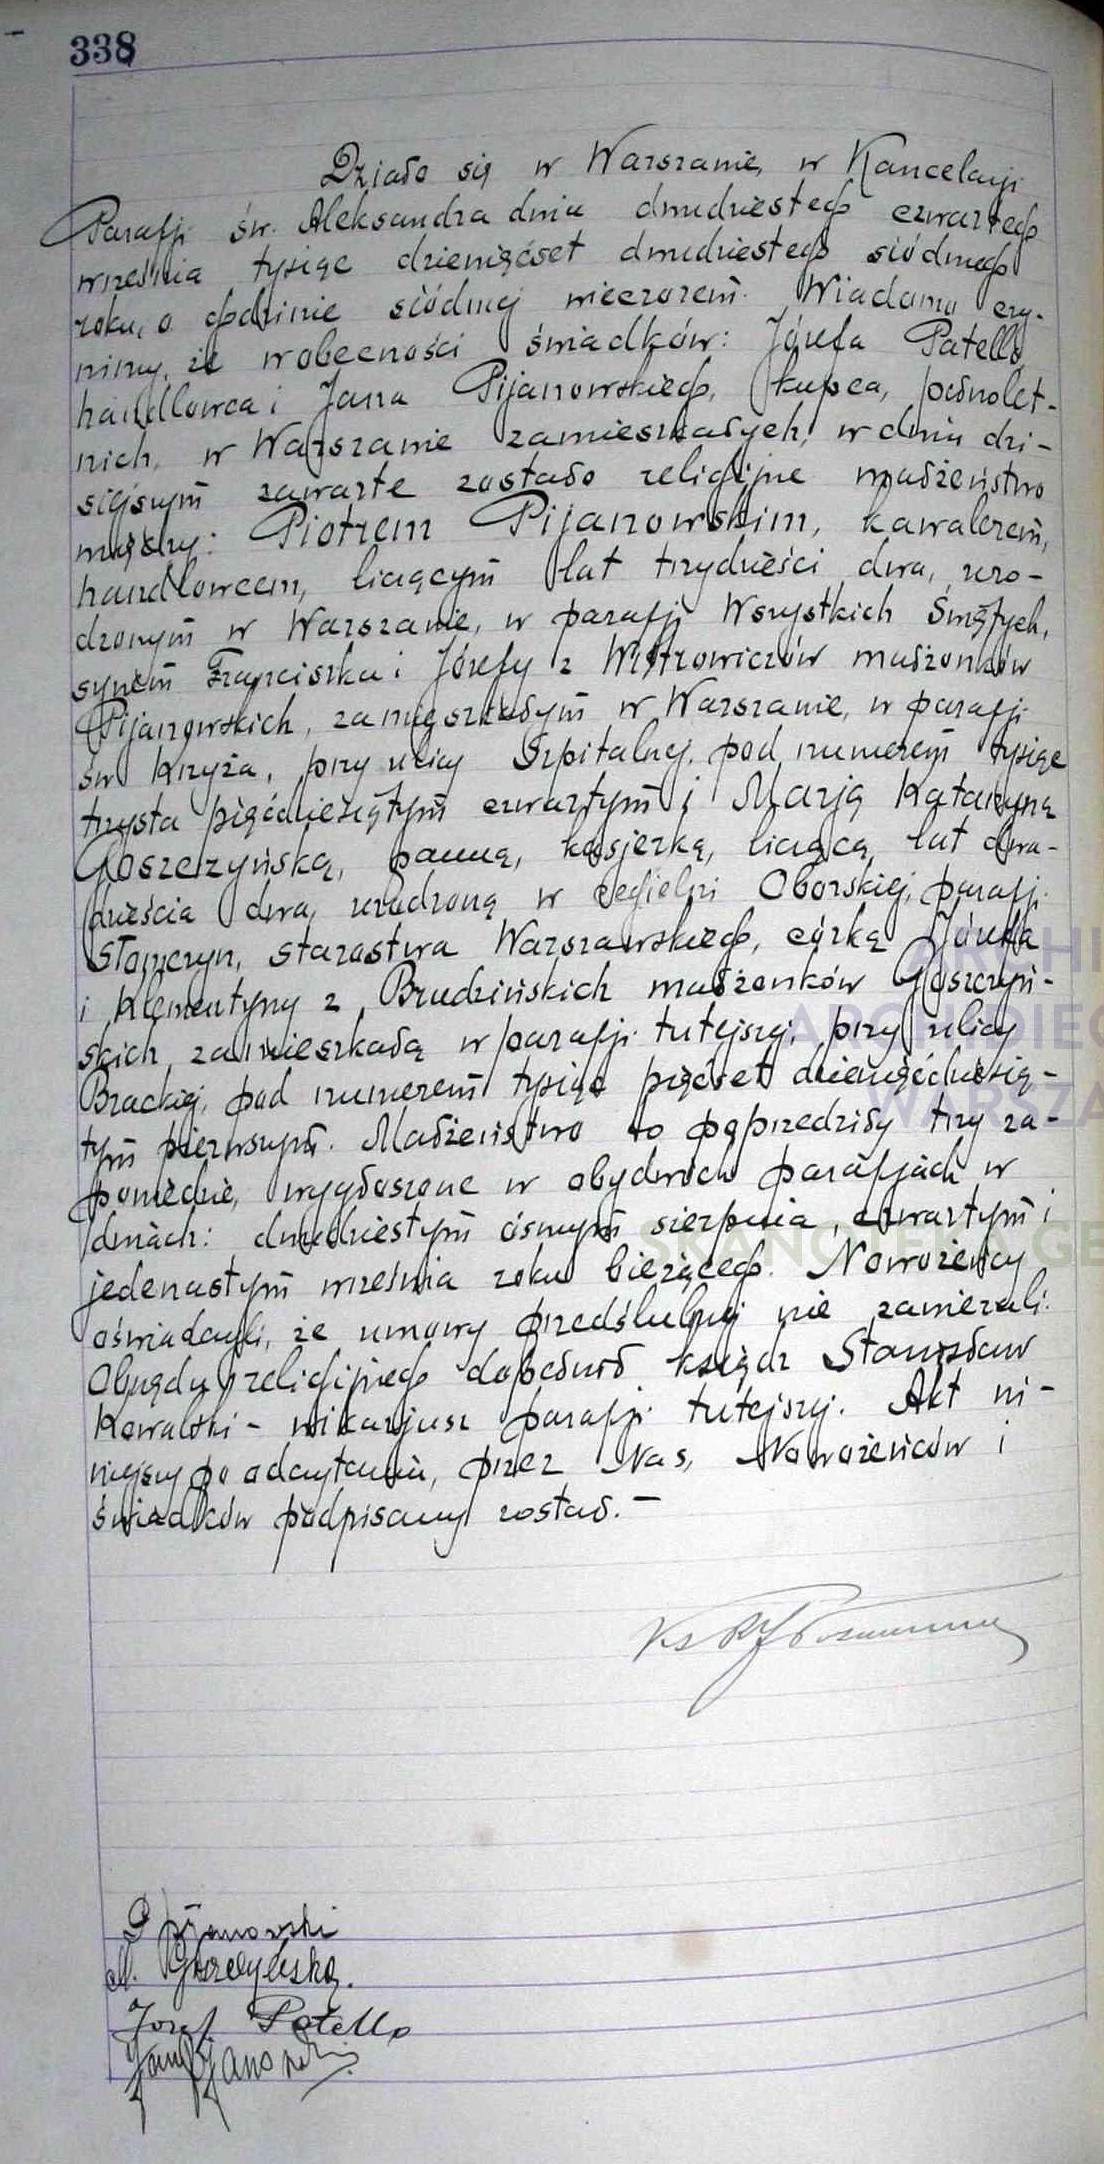 338
Działo się w Warszawie, w Kancelarji
Parafji św. Aleksandra dnia dwudziestego czwartego
września tysiąc dziewięćset dwudziestego siódmego
roku, o godzinie siódmej wieczorem. Wiadomo czy-
nimy, że wobecności świadków: Józefa Patello,
handlowca i Jana Pijanowskiego, kupca, pełnolet-
nich, w Warszawie zamieszkałych, w dniu dzi-
siejszym zawarte zostało religijne małżeństwo
między: Piotrem Pijanowskim, kawalerem,
handlowcem, liczącym lat trzydzieści dwa, uro-
dzonym w Warszawie, w parafji Wszystkich Świętych,
synem Franciszka i Józefy z małżonków
Pijanowskich, zamieszkałym w Warszawie, w parafji
św Krzyża, przy ulicy Szpitalnej, pod numerem tysiąc
trzysta pięćdziesiątym czwartym i Marją Katarzyną
Goszczyńską, panną, kasjerką, liczącą lat dwa-
dzieścia dwa, urodzoną w cegielni Oborskiej, parafji
Słomczyn, starostwa Warszawskiego, córką Józefa
i Klementyny z Brudzińskich małżonków Goszczyń-
skich, zamieszkałą w parafji tutejszej, przy ulicy
Brackiej, pod numerem tysiąc pięćset dziewięćdziesią-
tym pierwszym. Małżeństwo to poprzedziły trzy za-
powiedzie, wygłoszone w obydwóch parafjach w
dniach: dwudziestym ósmym sierpnia, czwartym i
jedenastym września roku bieżącego. Nowożeńcy
oświadczyli, że umowy przedślubnej nie zawierali.
Obrzędu religijnego dopełnił ksiądz Stanisław
Kowalski - wikarjusz parafji tutejszej. Akt ni-
niejszy po odczytaniu, przez Nas, Nowożeńców i
świadków podpisany został. —
Ks
P Pijanowski
M. Goszczyńska.
Józef Patello
Jan Pijanowski